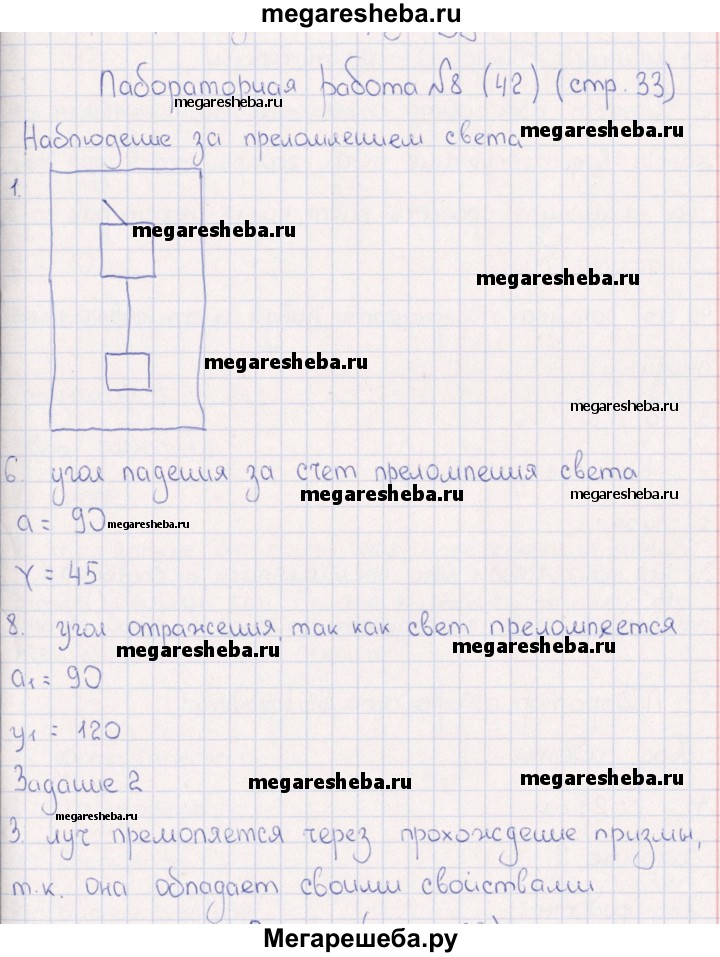 megaresheba.ru
Лабораторная работа №8 (42) (стр. 33)
megaresheba.ru
Наблюдение за преломлением света
megaresheba.ru
1.
megaresheba.ru
megaresheba.ru
megaresheba.ru
megaresheba.ru
6. угол падения за счет преломления света
megaresheba.ru
megaresheba.ru
a = 90
megaresheba.ru
γ = 45
8. угол отражения, так как свет преломляется
megaresheba.ru
megaresheba.ru
a1 = 90
y1 = 120
Задание 2
megaresheba.ru
megaresheba.ru
megaresheba.ru
3. луч премопяется через прохождение призмы,
т.к. она обладает своими свойствами
Мегарешеба.ру